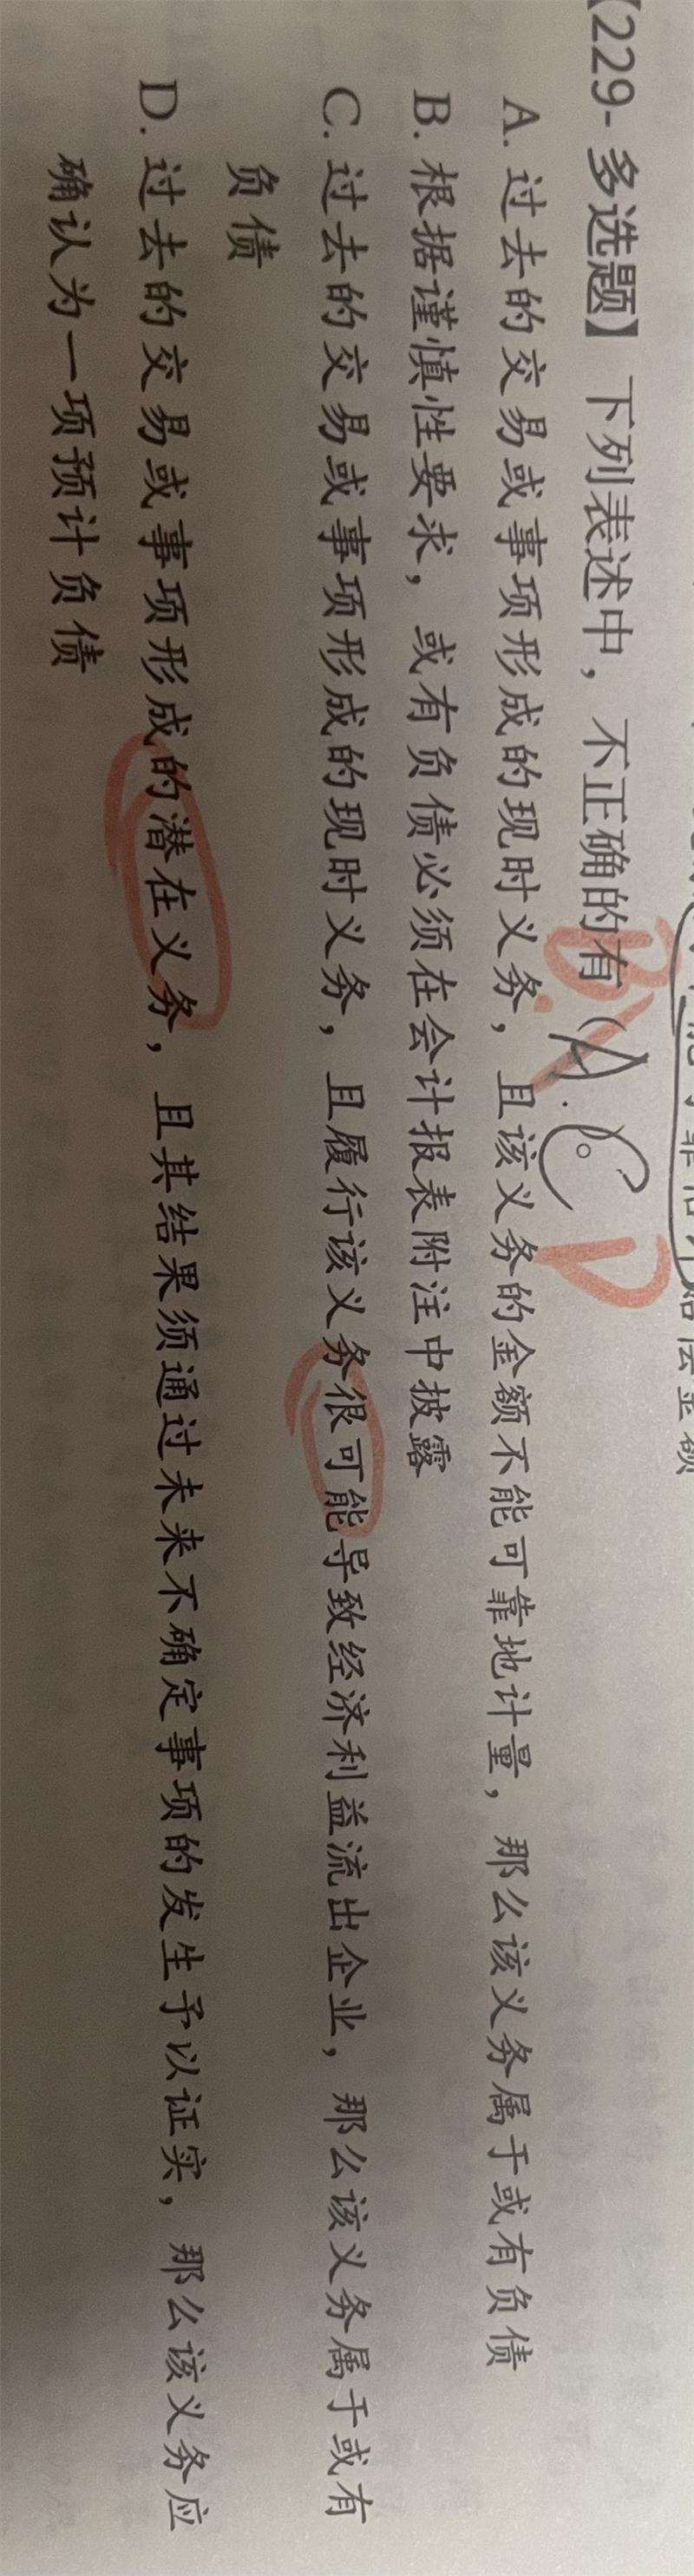 【229-多选题】下列表述中，不正确的有（A. C D
B
A. 过去的交易或事项形成的现时义务，且该义务的金额不能可靠地计量，那么该义务属于或有负债
B. 根据谨慎性要求，或有负债必须在会计报表附注中披露
C. 过去的交易或事项形成的现时义务，且履行该义务很可能导致经济利益流出企业，那么该义务属于或有
负债
D. 过去的交易或事项形成的潜在义务，且其结果须通过未来不确定事项的发生予以证实，那么该义务应
确认为一项预计负债